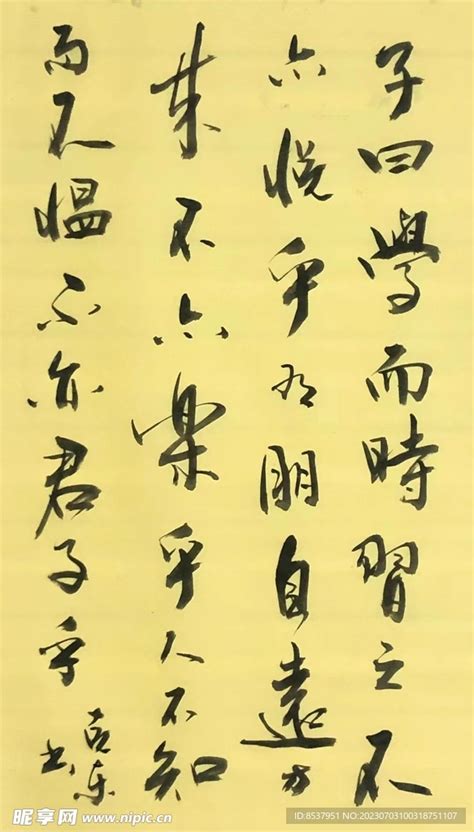 子曰學而時習之不
亦悦乎有朋自遠方
来不亦樂乎人不知
而不愠不亦君子乎
昵享网 www.nipic.cn
ID:8537951 NO:20230703100318751107